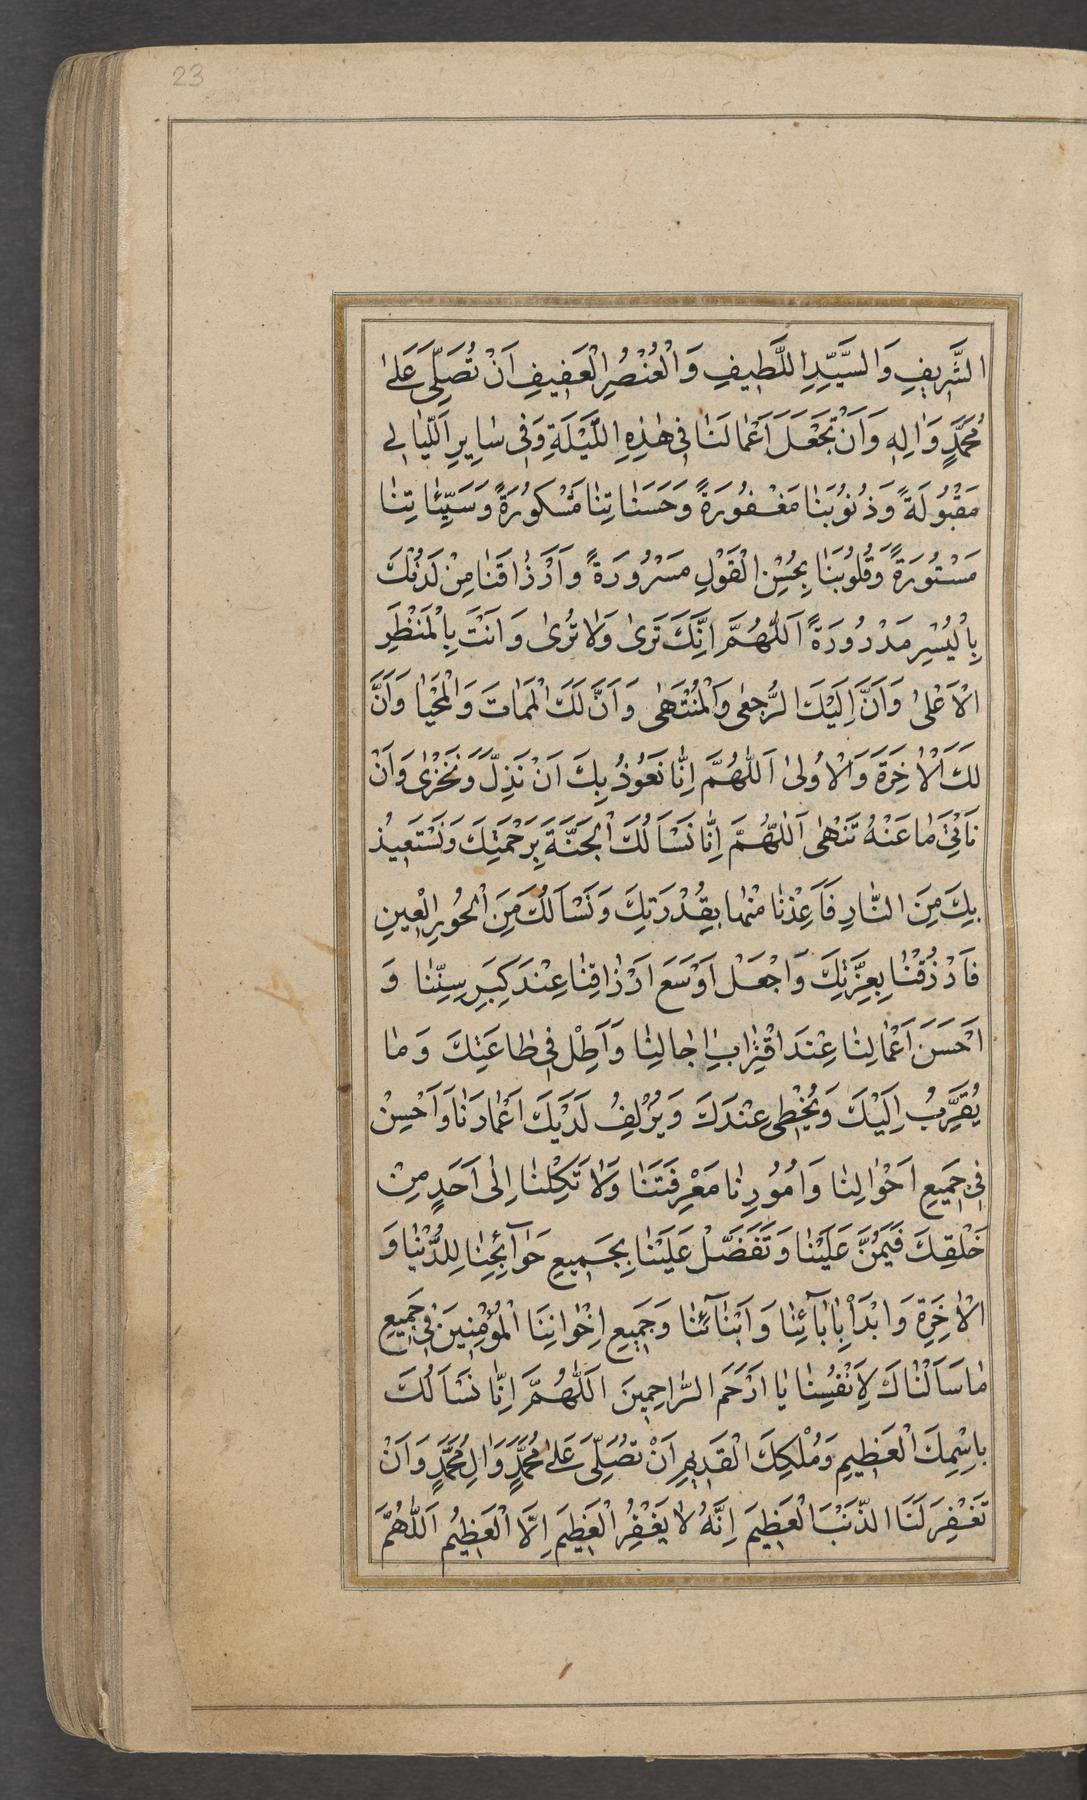 23
الشَّرِيفِ وَالسَّيِّدِ اللَّطِيفِ وَالْعُنْصُرِ الْعَفِيفِ اَنْ تُصَلِّيَ عَلىٰ
مُحَمَّدٍ وَاٰلِهِ وَاَنْ تَجْعَلَ اَعْمٰالَنٰا فِي هٰذِهِ اللَّيْلَةِ وَفِي سٰايِرِ اللَّيٰالِي
مَقْبُولَةً وَذُنُوبَنٰا مَغْفُورَةً وَحَسَنٰاتِنٰا مَشْكُورَةً وَسَيِّئٰاتِنٰا
مَسْتُورَةً وَقُلُوبَنٰا بِحُسْنِ الْقَوْلِ مَسْرُورَةً وَاَرْزٰاقَنٰا مِنْ لَدُنْكَ
بِالْيُسْرِ مَدْرُورَةً اَللّٰهُمَّ اِنَّكَ تَرىٰ وَلٰا تُرىٰ وَاَنْتَ بِالْمَنْظَرِ
الْاَعْلىٰ وَاَنَّ اِلَيْكَ الرُّجْعىٰ وَالْمُنْتَهىٰ وَاَنَّ لَكَ الْمَمٰاتَ وَالْمَحْيٰا وَاَنَّ
لَكَ الْاٰخِرَةَ وَالْاُولىٰ اَللّٰهُمَّ اِنّٰا نَعُوذُ بِكَ اَنْ نَذِلَّ وَنَخْزىٰ وَاَنْ
نَأْتِيَ مٰا عَنْهُ تَنْهىٰ اَللّٰهُمَّ اِنّٰا نَسْاَلُكَ الْجَنَّةَ بِرَحْمَتِكَ وَنَسْتَعِيذُ
بِكَ مِنَ النّٰارِ فَاَعِذْنٰا مِنْهٰا بِقُدْرَتِكَ وَنَسْاَلُكَ مِنَ الْحُورِ الْعِينِ
فَارْزُقْنٰا بِعِزَّتِكَ وَاجْعَلْ اَوْسَعَ اَرْزٰاقِنٰا عِنْدَ كِبَرِ سِنِّنٰا وَ
اَحْسَنَ اَعْمٰالِنٰا عِنْدَ اقْتِرٰابِ اٰجٰالِنٰا وَاَطِلْ فِي طٰاعَتِكَ وَمٰا
يُقَرِّبُ اِلَيْكَ وَيُحْظِي عِنْدَكَ وَيُزْلِفُ لَدَيْكَ اَعْمٰارَنٰا وَاَحْسِنْ
فِي جَمِيعِ اَحْوٰالِنٰا وَاُمُورِنٰا مَعْرِفَتَنٰا وَلٰا تَكِلْنٰا اِلىٰ اَحَدٍ مِنْ
خَلْقِكَ فَيَمُنَّ عَلَيْنٰا وَتَفَضَّلْ عَلَيْنٰا بِجَمِيعِ حَوٰآئِجِنٰا لِلدُّنْيٰا وَ
الْاٰخِرَةِ وَابْدَأْ بِاٰبٰآئِنٰا وَاَبْنٰآئِنٰا وَجَمِيعِ اِخْوٰانِنَا الْمُؤْمِنِينَ فِي جَمِيعِ
مٰا سَاَلْنٰاكَ لِاَنْفُسِنٰا يٰا اَرْحَمَ الرّٰاحِمِينَ اَللّٰهُمَّ اِنّٰا نَسْاَلُكَ
بِاسْمِكَ الْعَظِيمِ وَمُلْكِكَ الْقَدِيمِ اَنْ تُصَلِّيَ عَلىٰ مُحَمَّدٍ وَاٰلِ مُحَمَّدٍ وَاَنْ
تَغْفِرَ لَنَا الذَّنْبَ الْعَظِيمَ اِنَّهُ لٰا يَغْفِرُ الْعَظِيمَ اِلَّا الْعَظِيمُ اَللّٰهُمَّ